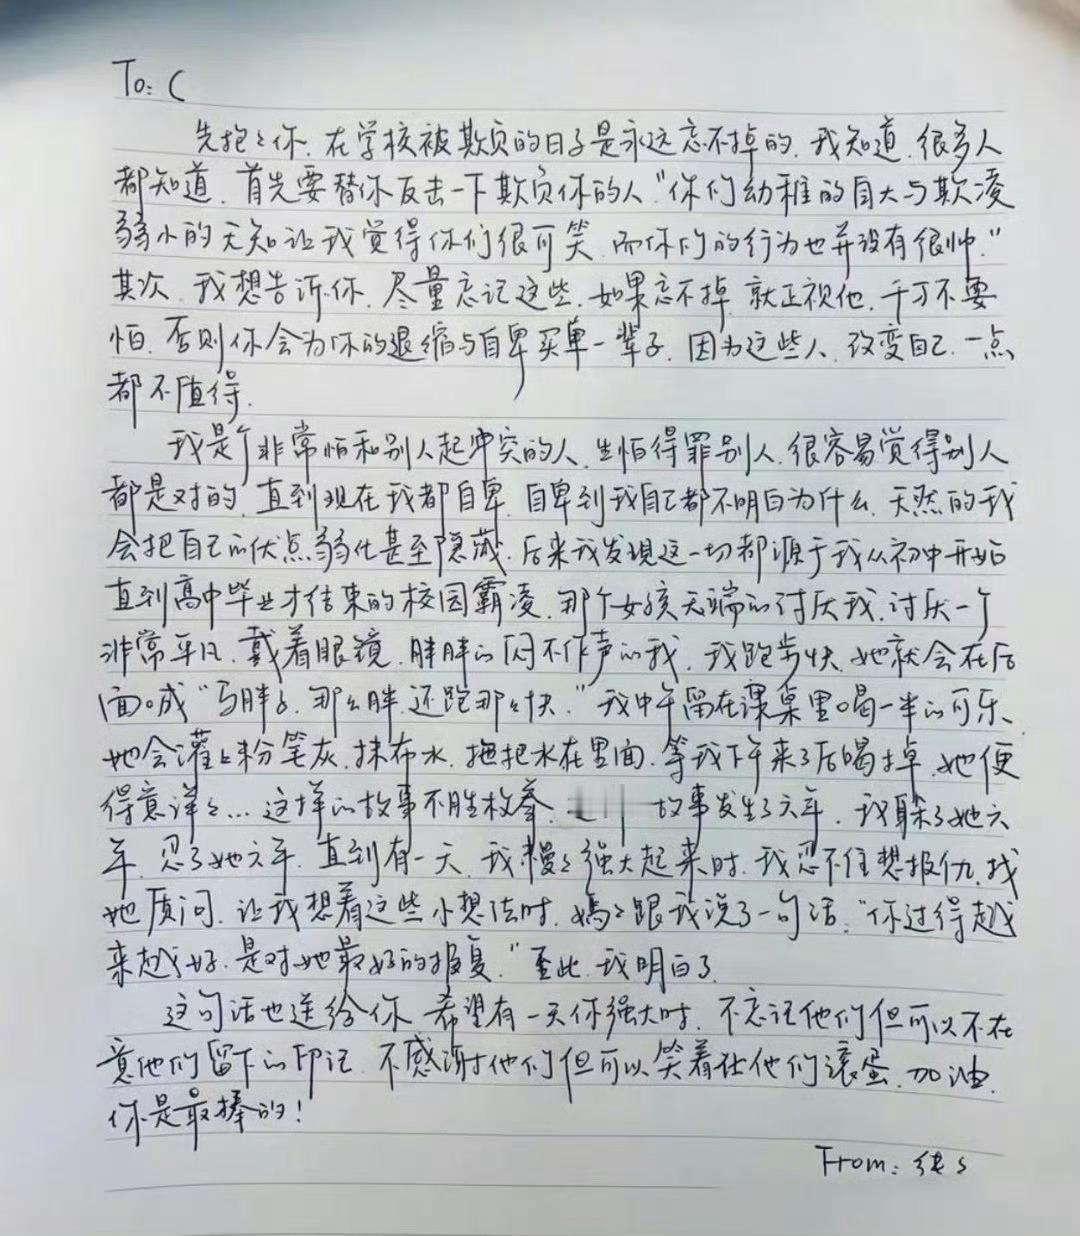 To: C
先抱々你.在学校被欺负的日子是永远忘不掉的.我知道.很多人
都知道.首先要替你反击一下欺负你的人“你们幼稚的自大与欺凌
弱小的无知让我觉得你们很可笑.而你们的行为也并没有很帅.”
其次.我想告诉你.尽量忘记这些.如果忘不掉.就正视他.千万不要
怕.否则你会为你的退缩与自卑买单一辈子.因为这些人.改变自己.一点
都不值得.
我是个非常怕和别人起冲突的人.生怕得罪别人.很容易觉得别人
都是对的.直到现在我都自卑.自卑到我自己都不明白为什么.天然的我
会把自己的优点弱化甚至隐藏.后来我发现这一切都源于我从初中开始
直到高中毕业才结束的校园霸凌.那个女孩无端的讨厌我.讨厌一个
非常平凡.戴着眼镜.胖胖的闷不作声的我.我跑步快.她就会在后
面喊“马胖子.那么胖.还跑那么快.”我中午留在课桌里喝一半的可乐、
她会灌上粉笔灰.抹布水.拖把水在里面.等我下午来了后喝掉.她便
得意洋々...这样的故事不胜枚举.故事发生了六年.我躲了她六
年.忍了她六年.直到有一天.我慢々强大起来时.我忍不住想报仇.找
她质问.让我想着这些小想法时.妈々跟我说了一句话:“你过得越
来越好.是对她最好的报复.”至此.我明白了.
这句话也送给你.希望有一天你强大时.不忘记他们但可以不在
意他们留下的印记.不感谢他们但可以笑着让他们滚蛋.加油.
你是最棒的!
From: